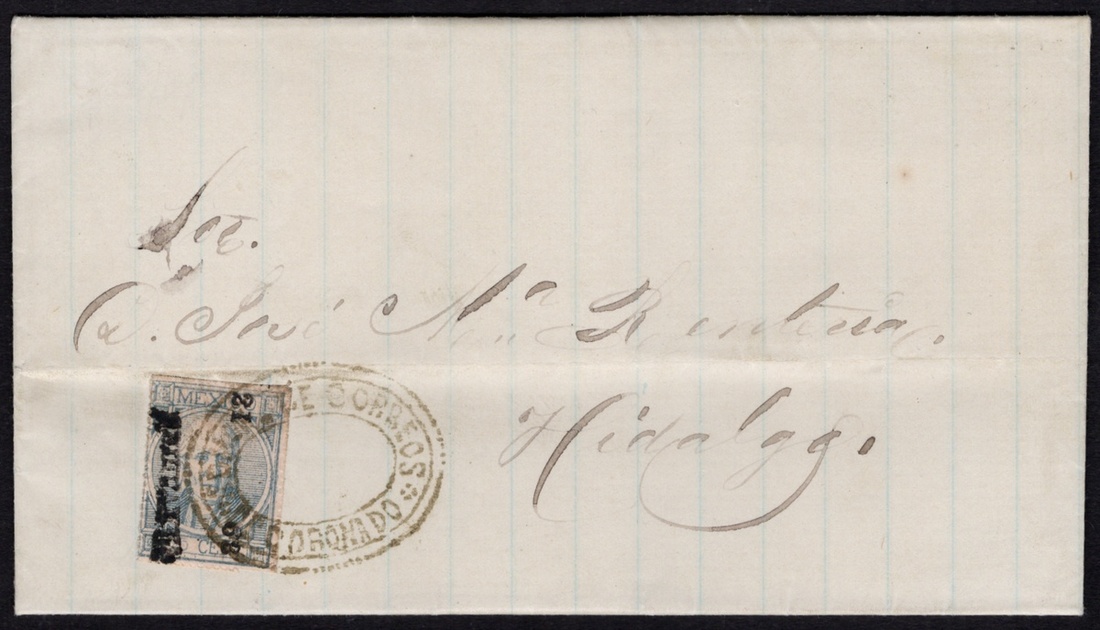 Sor.
D. José Ma Renteria.
Hidalgo.
MEXICO
21
80
DE CORREOS
CORONADO